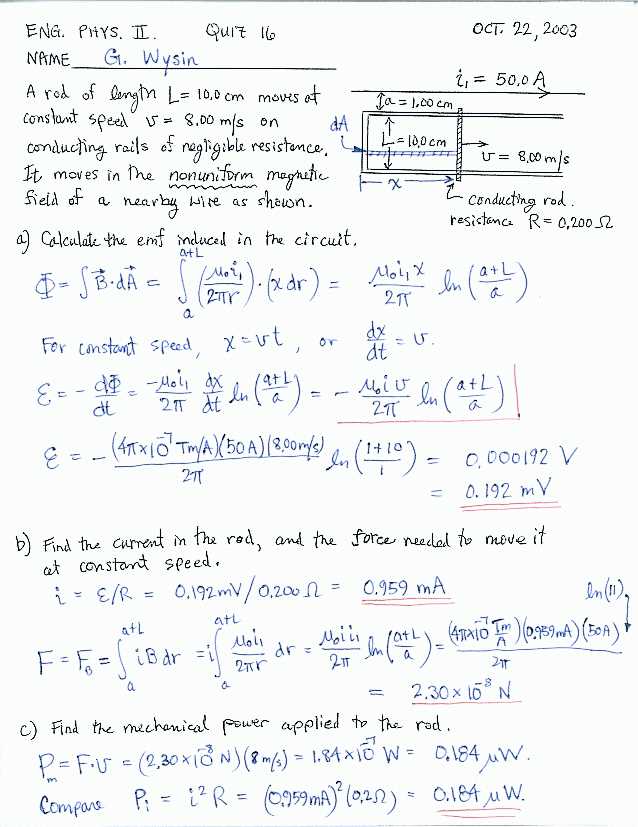 ENG. PHYS. II. QUIZ 16 OCT. 22, 2003
NAME G. Wysin
A rod of length L = 10.0 cm moves at
constant speed v = 8.00 m/s on
conducting rails of negligible resistance.
It moves in the nonuniform magnetic
field of a nearby wire as shown.
i₁ = 50.0 A
a = 1.00 cm
dA
L = 10.0 cm
v = 8.00 m/s
x
conducting rod.
resistance R = 0.200 Ω
a) Calculate the emf induced in the circuit.
Φ = ∫ B⃗·dA⃗ = ∫ₐᵃ⁺ᴸ (μ₀i₁/2πr)·(x dr) = μ₀i₁x/2π ln((a+L)/a)
For constant speed, x = vt, or dx/dt = v.
ℰ = - dΦ/dt = -μ₀i₁/2π dx/dt ln((a+L)/a) = - μ₀iv/2π ln((a+L)/a)
ℰ = - (4π×10⁻⁷ Tm/A)(50A)(8.00m/s)/2π ln((1+10)/1) = 0.000192 V
= 0.192 mV
b) Find the current in the rod, and the force needed to move it
at constant speed.
i = ℰ/R = 0.192mV/0.200Ω = 0.959 mA
ln(11)
F = F_B = ∫ₐᵃ⁺ᴸ iB dr = i∫ₐᵃ⁺ᴸ μ₀i₁/2πr dr = μ₀i₁i/2π ln((a+L)/a) = (4π×10⁻⁷ Tm/A)(0.959mA)(50A)/2π
= 2.30×10⁻⁸ N
c) Find the mechanical power applied to the rod.
Pₘ = F·v = (2.30×10⁻⁸ N)(8 m/s) = 1.84×10⁻⁷ W = 0.184 μW.
Compare Pᵢ = i²R = (0.959mA)²(0.2Ω) = 0.184 μW.